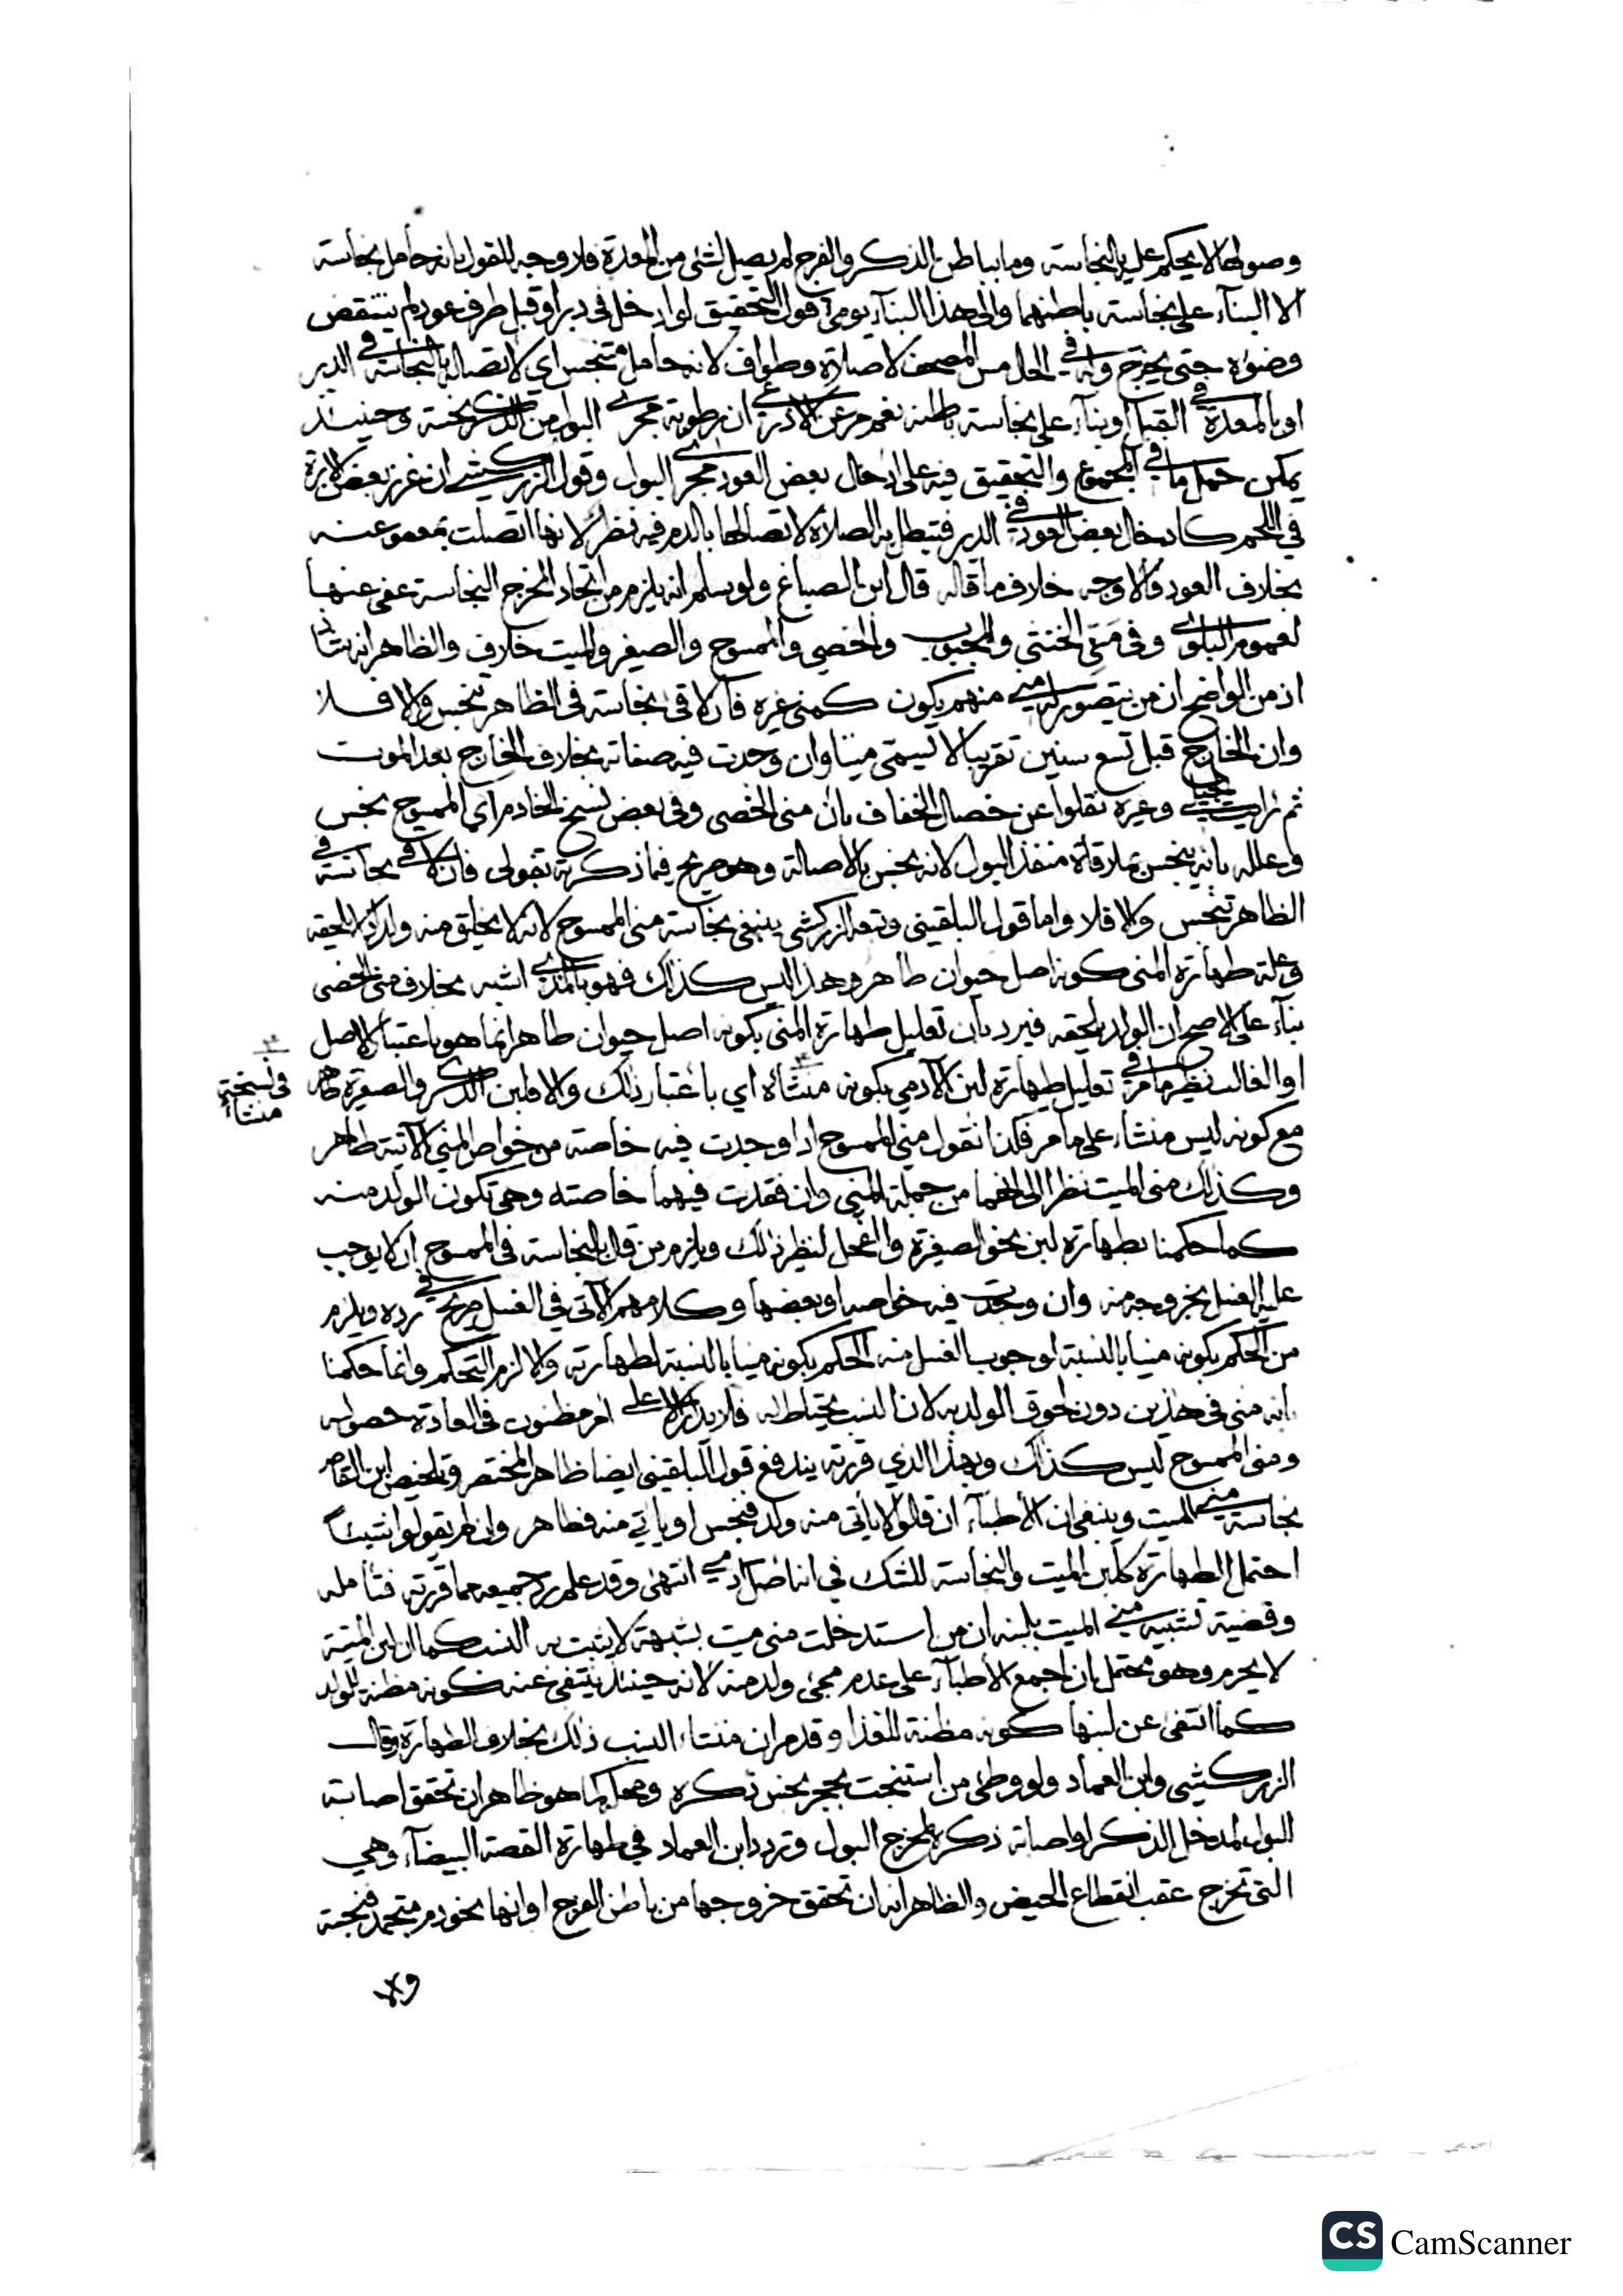 وصولها لا يحكم عليه بالنجاسة وما بباطن الذكر والفرج لم يصل لشئ من المعدة فلا وجه للقول بانه حامل نجاسة
الا البناء على نجاسة باطنهما والى هذا البناء يومئ قول التحقيق لو ادخل في دبر او قبل طرف عود لم ينتقض
وضوؤه حتى يخرج وله في الحال مس المصحف لا صلاة وطواف لانه حامل متنجس اي لاتصاله بالنجاسة في الدبر
او بالمعدة في القبل او بناء على نجاسة باطنه نعم مر عن الاذرعي ان رطوبة مجرى البول من الذكر نجسة وحينئذ
يمكن حمل ما في المجموع والتحقيق فيه على ادخال بعض العود مجرى البول وقول الزركشي ان غرز بعض الابرة
في اللحم كادخال بعض العود في الدبر فتبطل به الصلاة لاتصالها بالدم فيه نظر لانها اتصلت بمعفو عنه
بخلاف العود فالاوجه خلاف ما قاله قال ابن الصباغ ولو سلم انه يلزم من اتحاد المخرج النجاسة عفي عنها
لعموم البلوى وفي مني الخنثى والمجبوب والخصي والممسوح والصغير والميت خلاف والظاهر انه
اذ من الواضح ان من يتصور له مني منهم يكون كمني غيره فان لاقى نجاسة في الظاهر تنجس والا فلا
وان الخارج قبل تسع سنين تقريبا لا يسمى منيا وان وجدت فيه صفاته بخلاف الخارج بعد الموت
ثم رايت وغيره نقلوا عن خصال الخفاف بان مني الخصي وفي بعض نسخ الخادم اي الممسوح نجس
وعلله بانه ينجس بملاقاة منفذ البول لانه نجس بالاصالة وهو صريح فيما ذكرته بقولي فان لاقى نجاسة في
الظاهر تنجس والا فلا واما قول البلقيني وتبعه الزركشي ينبغي نجاسة مني الممسوح لانه لا يخلق منه ولد لا يلحقه
وعلة طهارة المني كونه اصل حيوان طاهر وهذا ليس كذلك فهو بالمذي اشبه بخلاف مني الخصي
بناء على الاصح ان الولد يلحقه فيرد بان تعليل طهارة المني بكونه اصل حيوان طاهر انما هو باعتبار الاصل
او الغالب نظير ما مر في تعليل طهارة لبن الآدمي بكونه منشأه اي باعتبار ذلك والا فلبن الذكر والصغيرة طاهر
في نسخة
منشأ
مع كونه ليس منشاء على ما مر فكذا نقول مني الممسوح اذا وجدت فيه خاصة من خواص المني الآتية طاهر
وكذلك مني الميت نظرا الى انهما من جملة المني وان فقدت فيهما خاصته وهي تكون الولد منه
كما حكمنا بطهارة لبن نحو الصغيرة والفحل لنظير ذلك ويلزم من قال بالنجاسة في الممسوح ان لا يوجب
عليه الغسل بخروجه منه وان وجدت فيه خواصه او بعضها وكلامهم الآتي في الغسل صريح في رده ويلزم
من الحكم بكونه منيا بالنسبة لوجوب الغسل منه الحكم بكونه منيا بالنسبة لطهارته والا لزم التحكم وانما حكمنا
بانه مني في هذين دون لحوق الولد به لان النسب يحتاط له فلا يدار الا على امر مظنون في العادة حصوله
ومني الممسوح ليس كذلك وبهذا الذي قررته يندفع قول البلقيني ايضا ظاهر المختصر وتلخيص ابن القاص
نجاسة مني الميت وينبغي ان الاطباء ان قالوا لا يأتي منه ولد فنجس او يأتي منه فطاهر وان لم يقولوا شيئا
احتمل الطهارة كلبن الميت والنجاسة للشك في انه اصل آدمي انتهى وقد علم رد جميعه مما قررته فتأمله
وقضية تشبيه مني الميت بلبنه ان من استدخلت مني ميت بشبهة لا يثبت به النسب كما ان لبن الميتة
لا يحرم وهو محتمل بان اجمع الاطباء على عدم مجئ ولد منه لانه حينئذ ينتفي عنه كونه مظنة للولد
كما انتفى عن لبنها كونه مظنة للغذا وقد مر ان منشاء النسب ذلك بخلاف الطهارة وقال
الزركشي وابن العماد ولو وطئ من استنجت بحجر نجس ذكره ومحله كما هو ظاهر ان تحقق اصابة
البول لمدخل الذكر او اصابة ذكره لمخرج البول وتردد ابن العماد في طهارة القصة البيضآء وهي
التي تخرج عقب انقطاع الحيض والظاهر انه ان تحقق خروجها من باطن الفرج او انها نحو دم متجمد فنجسة
والا
CS CamScanner